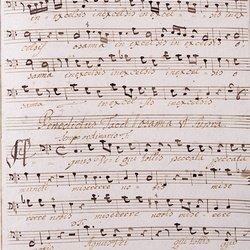 in excelsis in excelsis in
celsis osanna in excelsis in excelsis
sanna in excelsis in excelsis o
in excelsis in excelsis
Benedictus Tacet osanna ut supra
Agnus Dei qui tollis peccata peccata
mundi miserere nobis
rere nobis miserere nobis mise
Agnus Dei qui tollis